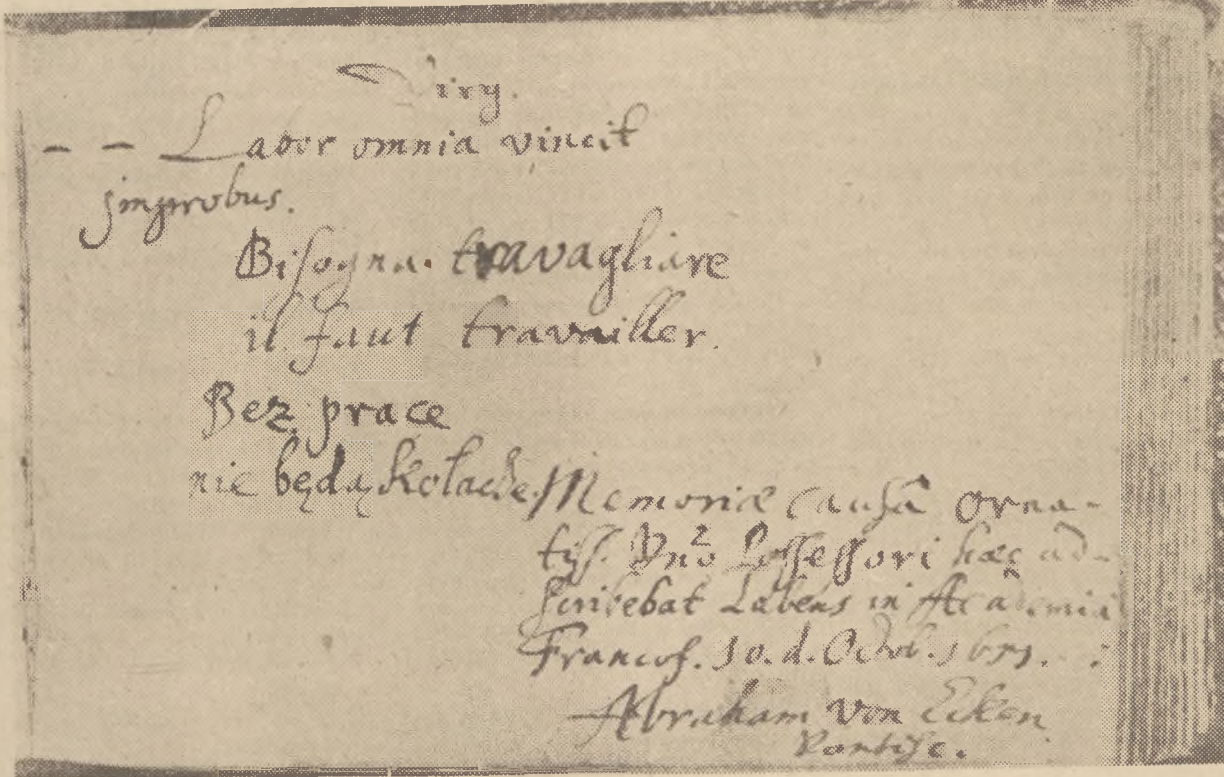 Virg.
– – Labor omnia vincit
jmprobus.
Bisogna travagliare
il faut travailler.
Bez prace
nie będą kołacze.
Memoriæ causâ Orna-
tiss. Dno Possessori hæc ad-
scribebat Labens in Academia
Francof. 10. d. Octob.
Abraham von Eicken